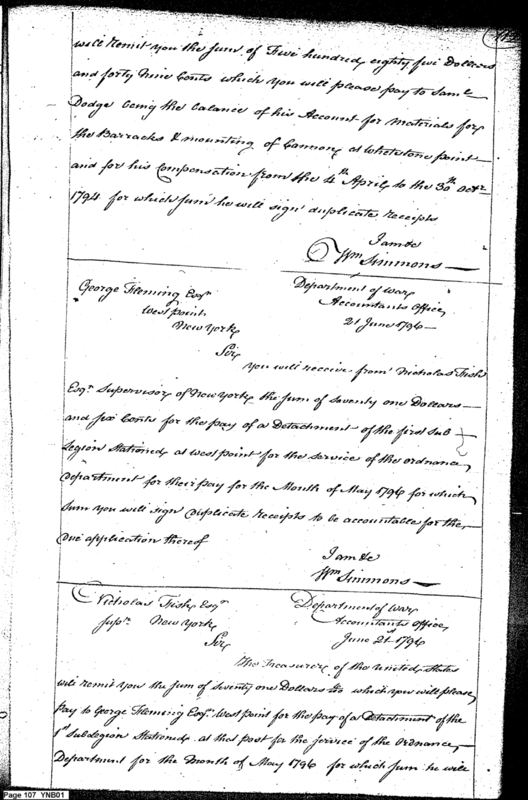 will remit you the sum of Five hundred eighty five Dollars
and forty Nine Cents which you will please pay to Saml
Dodge being the balance of his Account for materials for
the Barracks & mounting of Cannon at Whetstone point
and for his Compensation from the 4th April to the 30th Octr
1794 for which sum he will sign duplicate receipts
I am &c
Wm Simmons
George Fleming Esqr
West point
New York
Department of War
Accountants Office
21 June 1796
Sir
You will receive from Nicholas Fish
Esqr Supervisor of New York the sum of seventy one Dollars
and six Cents for the pay of a Detachment of the first Sub
Legion Stationed at West point for the service of the ordnance
department for their pay for the Month of May 1796 for which
sum you will sign duplicate receipts to be accountable for the
due application thereof
I am &c
Wm Simmons
Nicholas Fish Esqr
Supr New York
Department of War
Accountants Office
June 21st 1796
Sir
The Treasurer of the United States
will remit you the sum of seventy one Dollars which you will please
pay to George Fleming Esqr West point for the pay of a Detachment of the
1st Sublegion Stationed at that post for the service of the Ordnance
Department for the Month of May 1796 for which sum he will
Page 107 YNB01